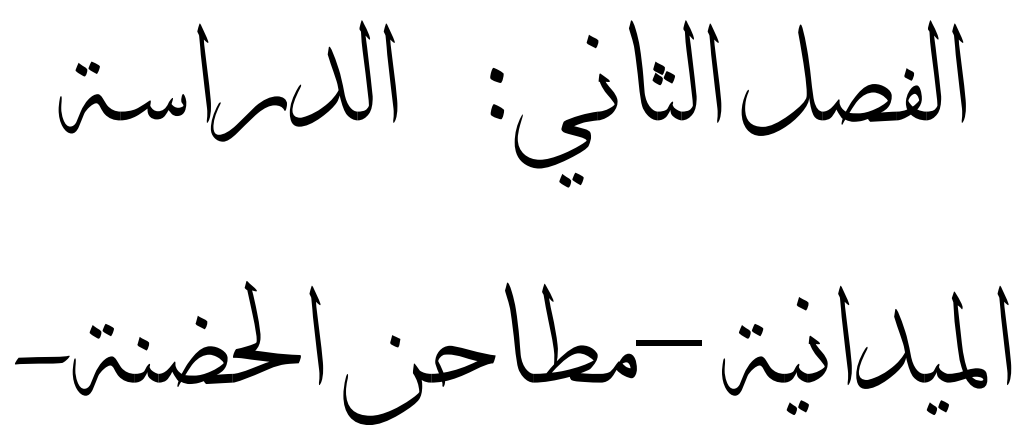 الفصل الثاني: الدراسة
الميدانية –مطاحن الحضنة-